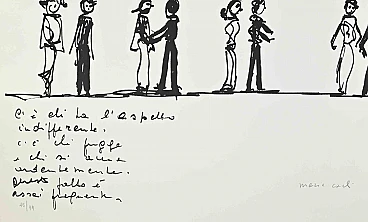 c'è chi ha l'aspetto
indifferente.
c'è chi fugge
e chi si
ardentemente.
Questo fatto è
assai frequente.